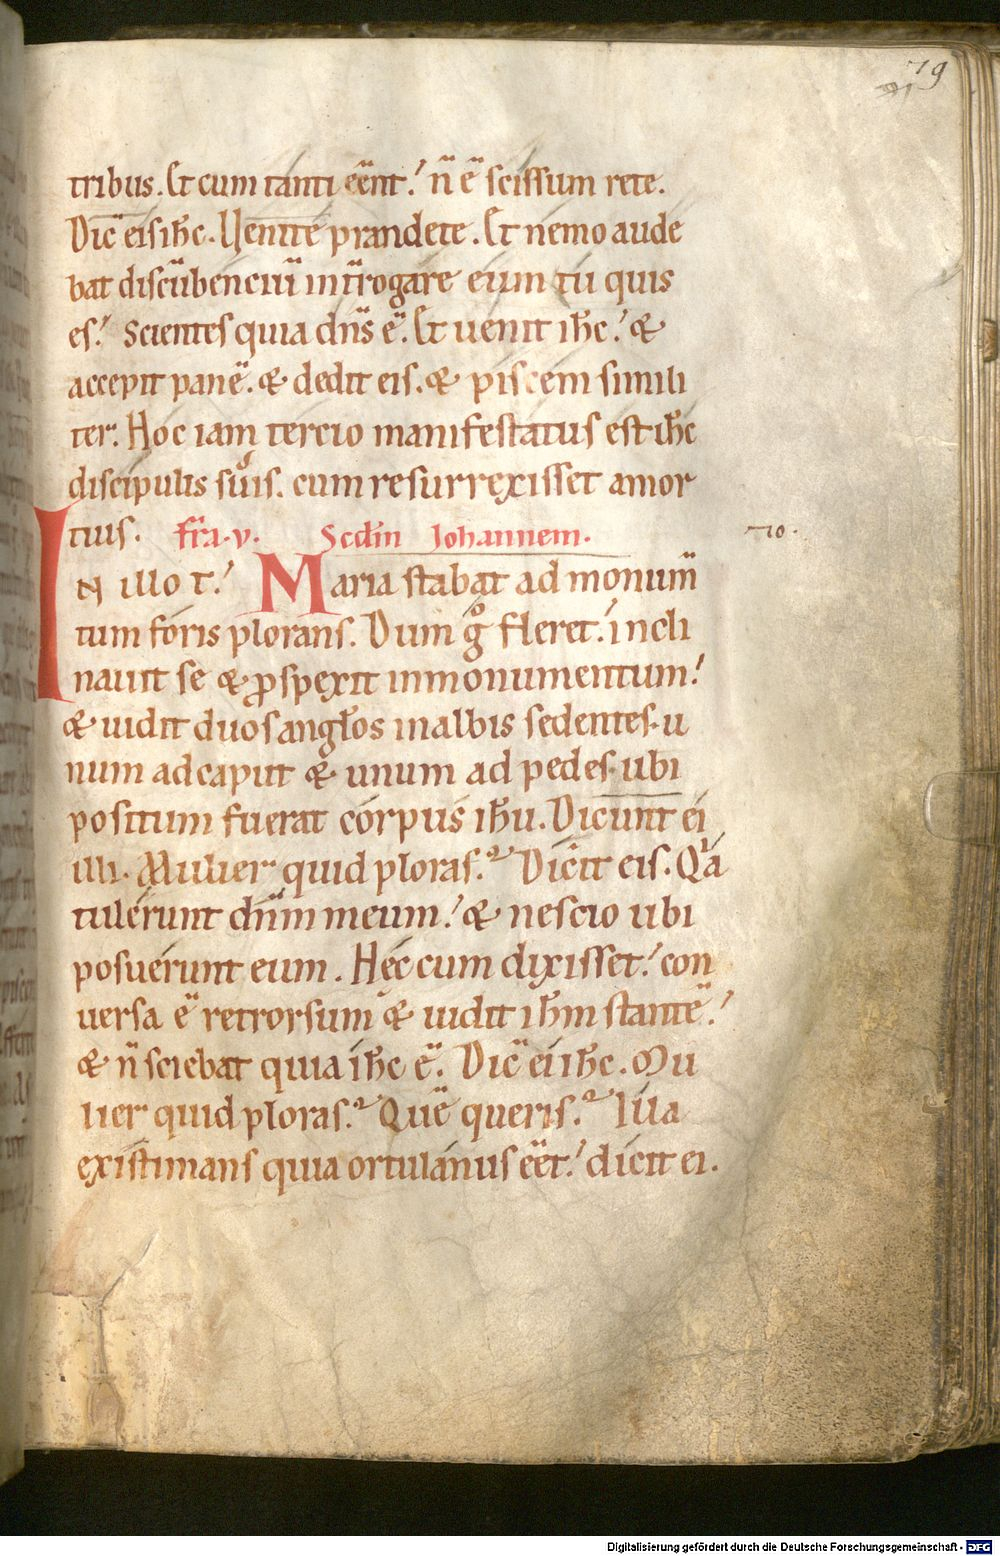 79
tribus. Et cum tanti eēnt! n̄ ē scissum rete.
Dic̄ eis ih̄c. Uenite prandete. Et nemo aude
bat discūbenciū int̄rogare eum tu quis
es! Scientes quia dn̄s ē. Et uenit ih̄c! &
accepit panē. & dedit eis. & piscem simili
ter. Hoc iam tercio manifestatus est ih̄c
discipulis suis. cum resurrexisset a mor
tuis. fr̄a. v. Scd̄m Johannem.
70.
IN illo t̄! Maria stabat ad monum̄
tum foris plorans. Dum gͦ fleret. incli
nauit se & ꝓspexit in monumentum!
& uidit duos angłos in albis sedentes. u
num ad caput & unum ad pedes. ubi
positum fuerat corpus ih̄u. Dicunt ei
illi. Mulier quid ploras? Dicit eis. Qͣa
tulerunt dn̄m meum! & nescio ubi
posuerunt eum. Hec cum dixisset! con
uersa ē retrorsum & uidit ih̄m stantē!
& n̄ sciebat quia ih̄c ē. Dic̄ ei ih̄c. Mu
lier quid ploras? Quē queris? Illa
existimans quia ortulanus eēt! dicit ei.
Digitalisierung gefördert durch die Deutsche Forschungsgemeinschaft - DFG